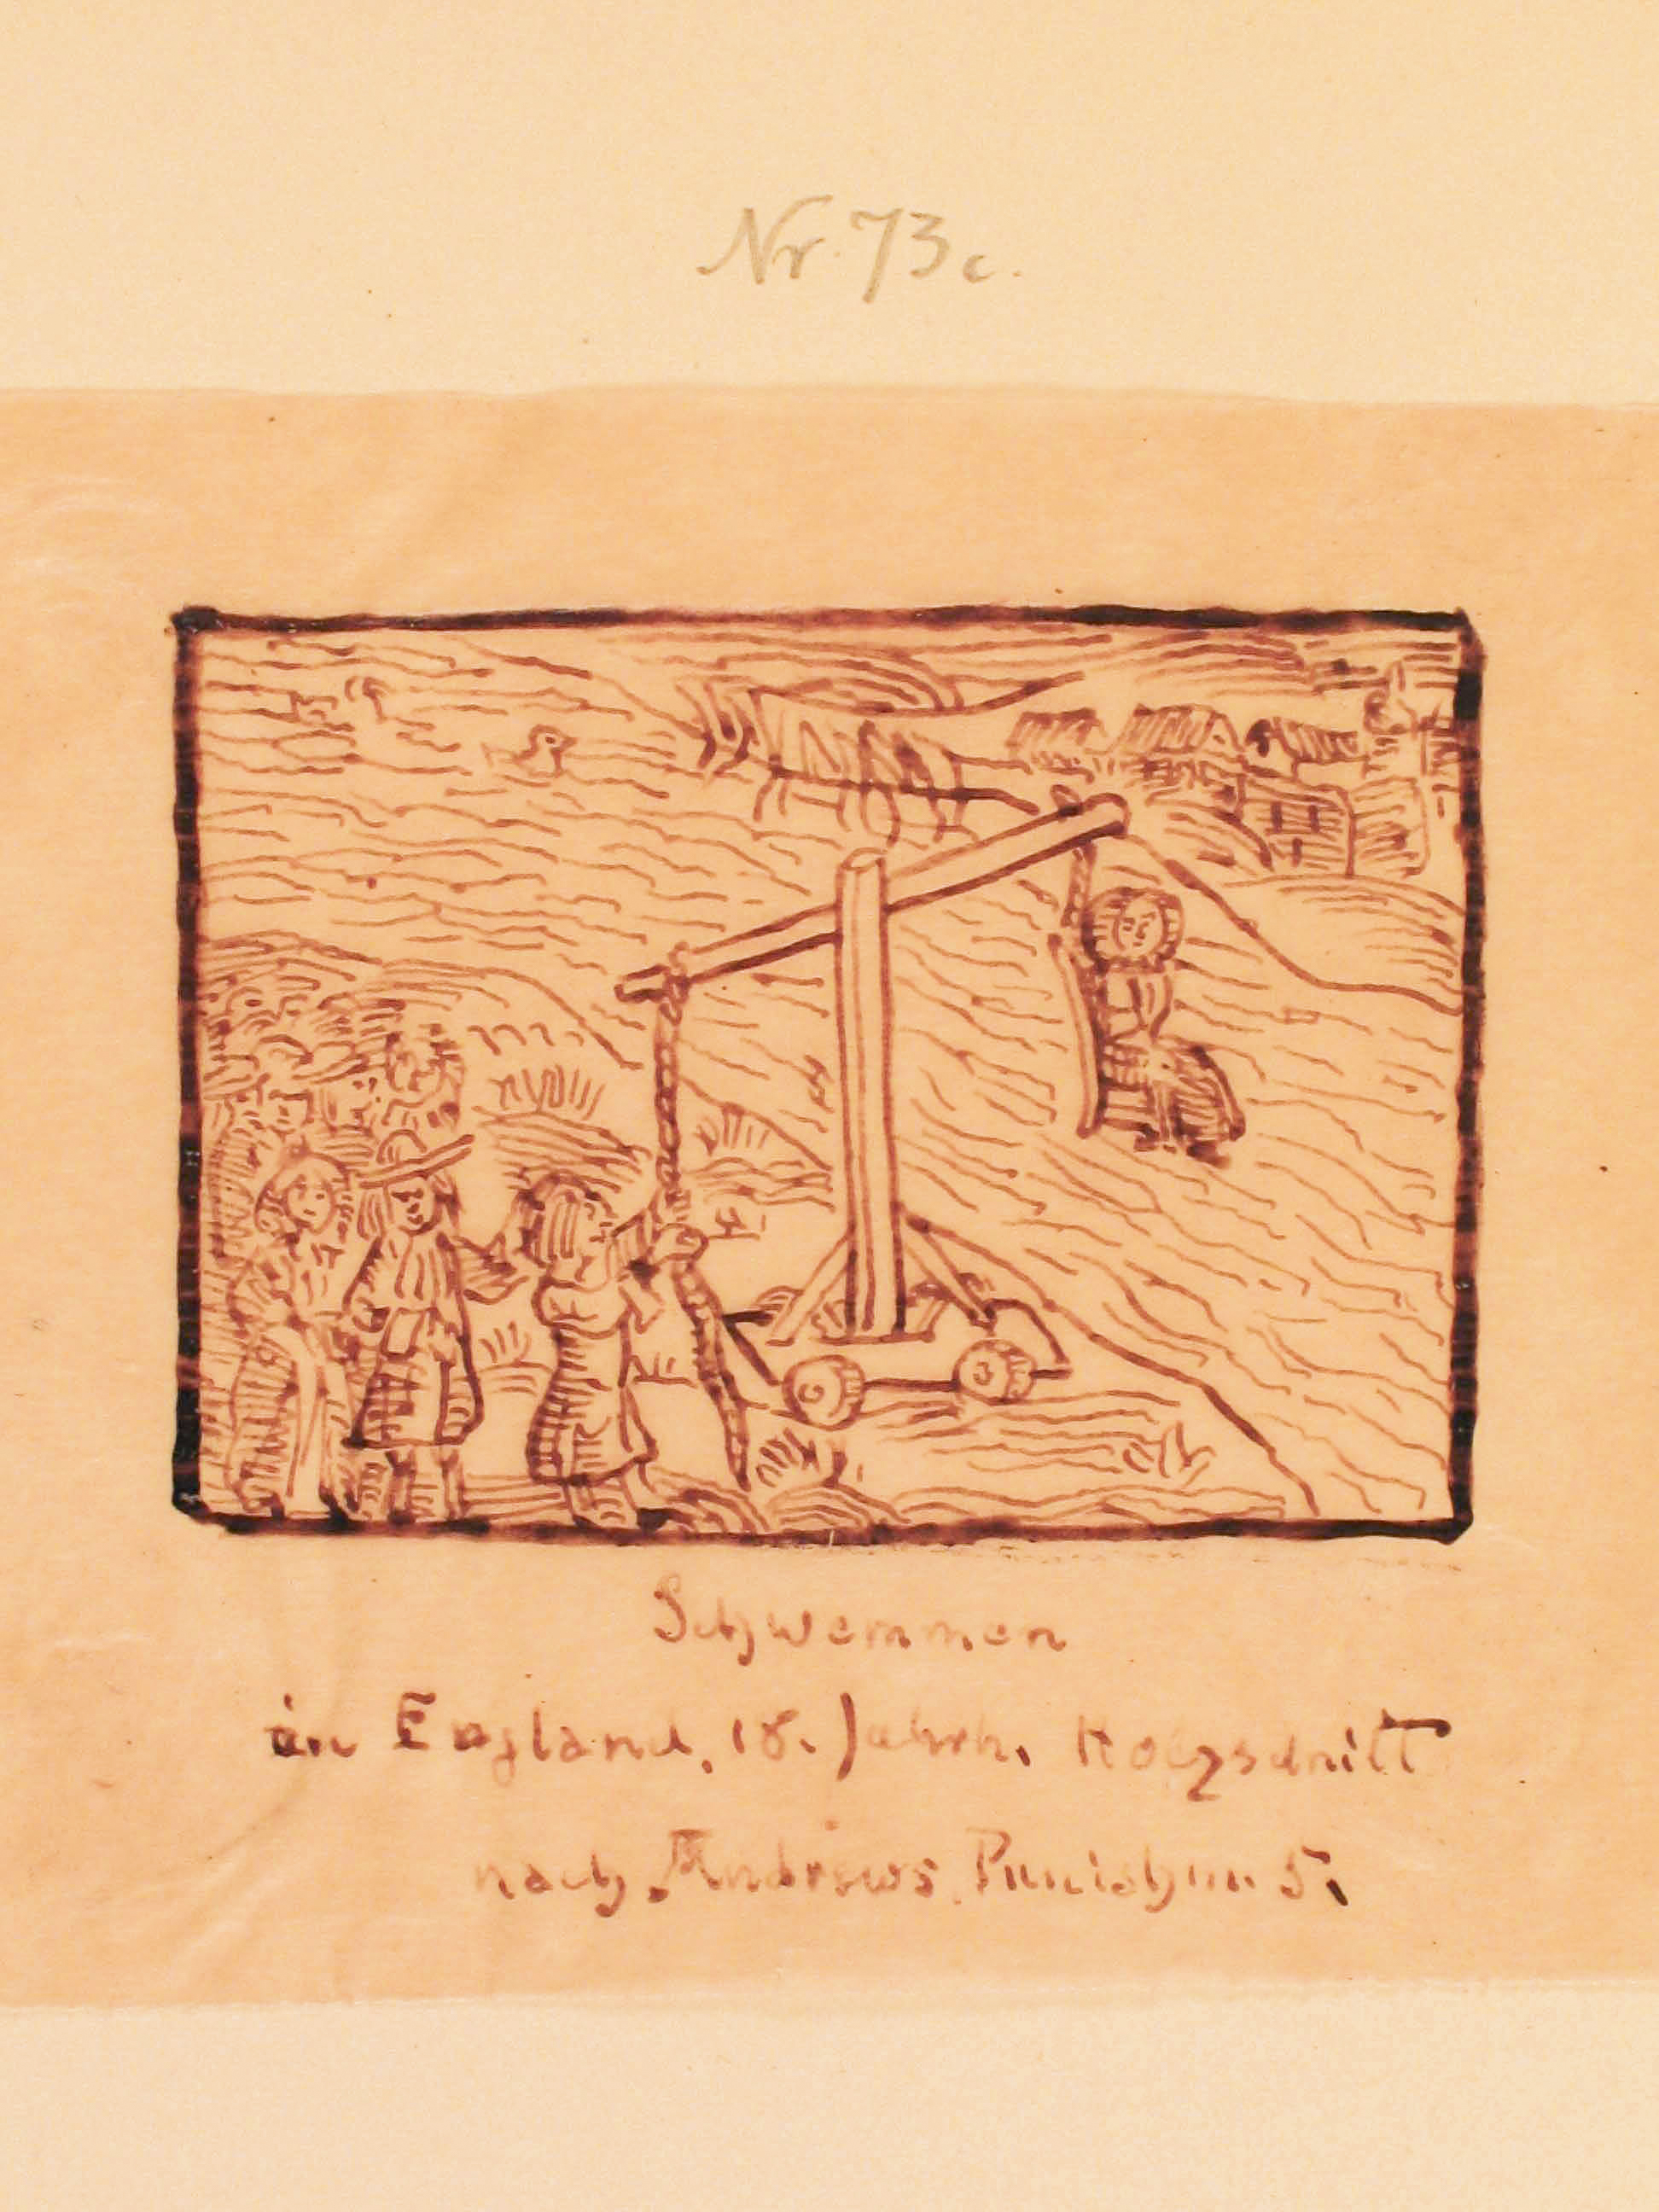 Nr. 73c.
Schwemmen
in England, 18. Jahrh. Holzschnitt
nach Andrews, Punishm. 5.